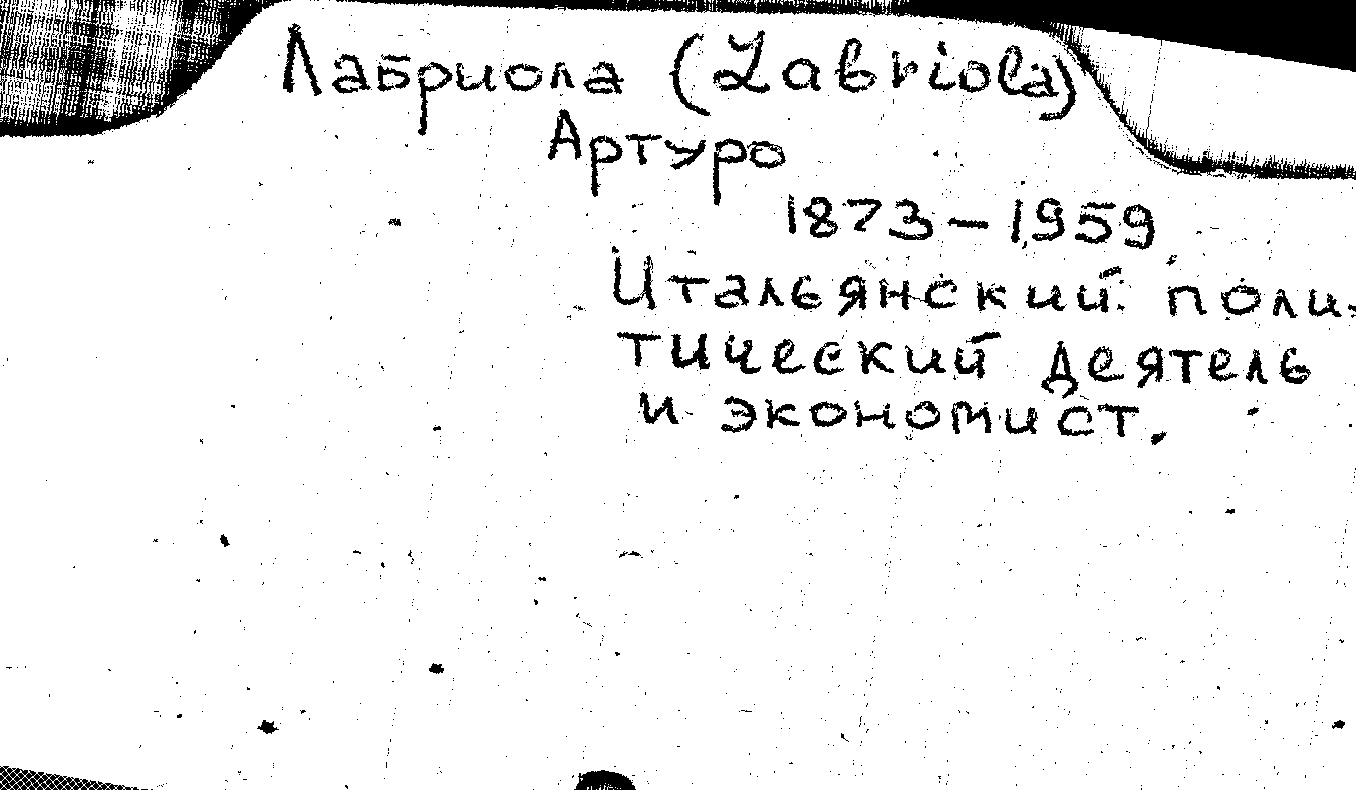 Лабриола (Labriola)
Артуро
1873–1959
Итальянский поли-
тический деятель
и экономист.